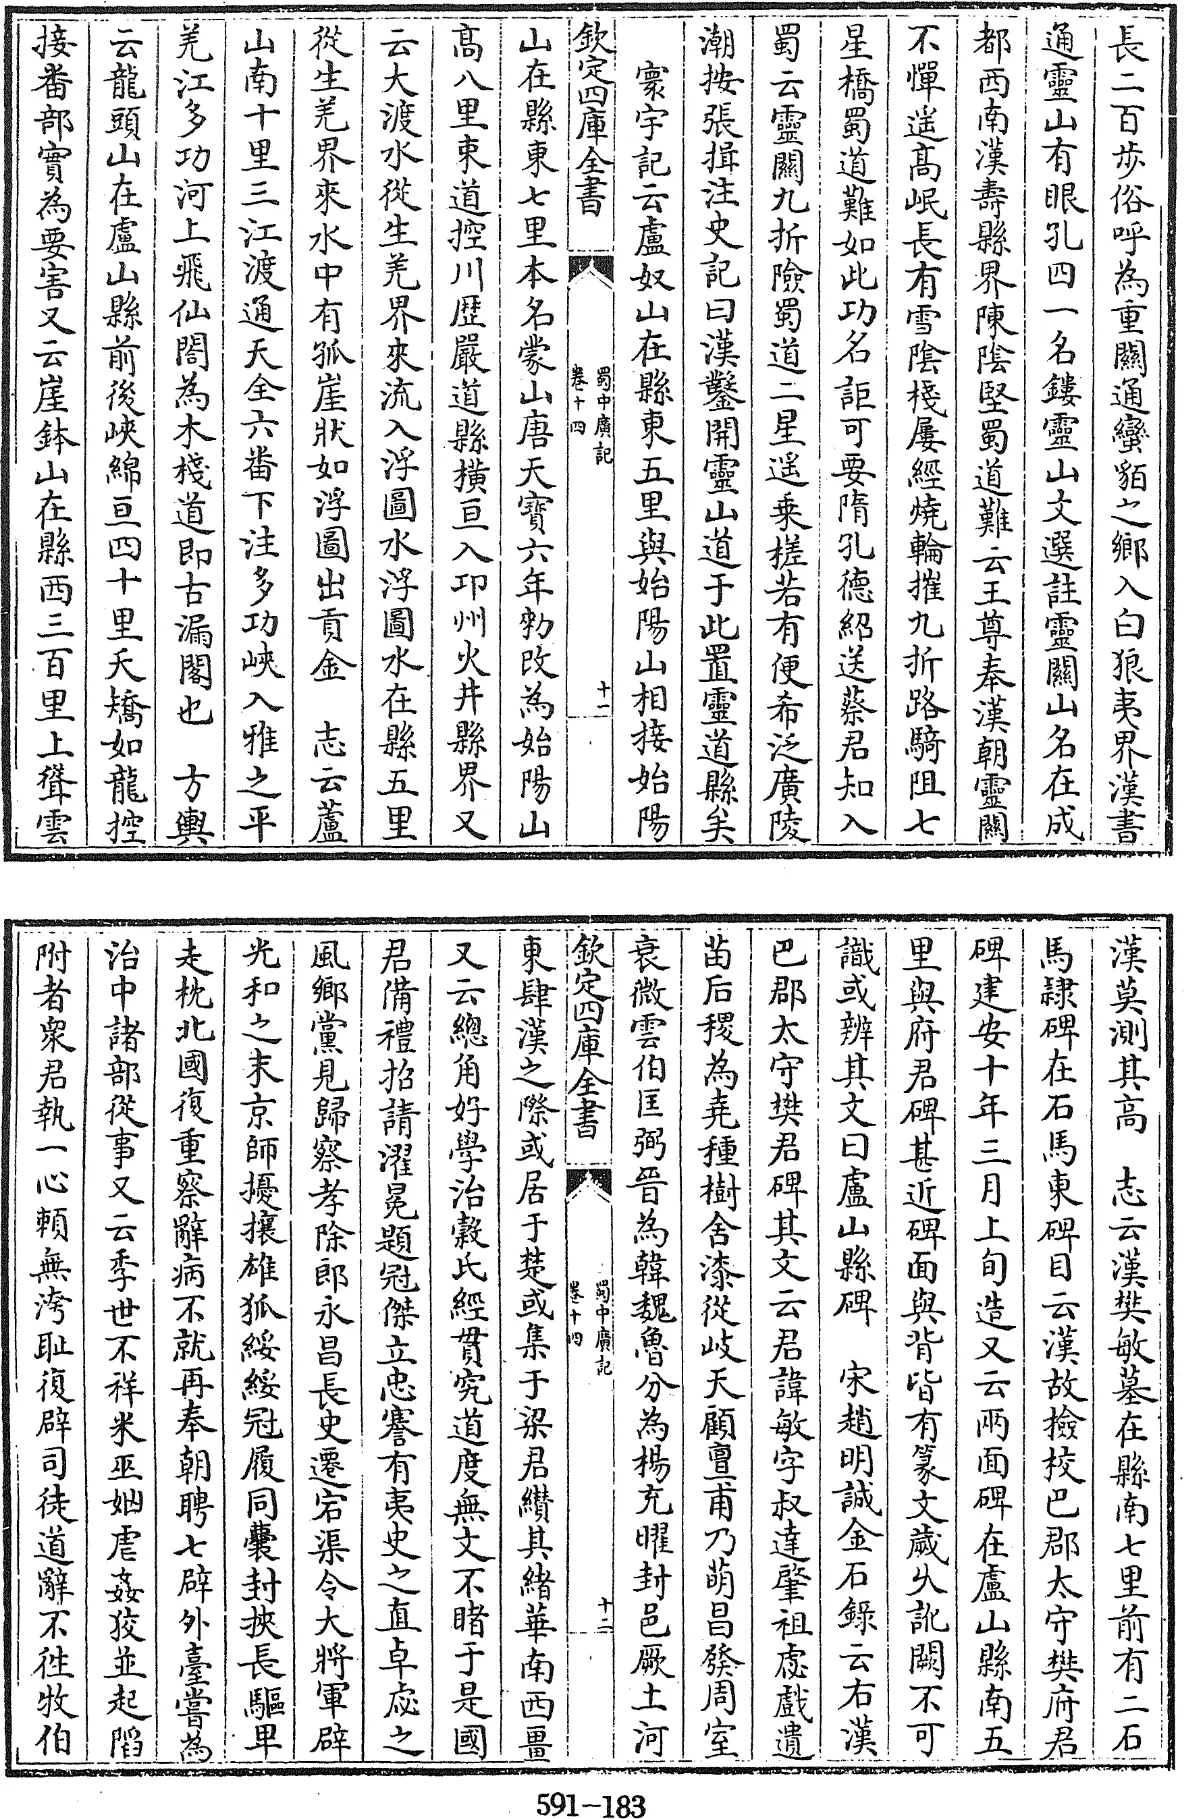 長二百歩俗呼為重關通蠻貊之鄉入白狼夷界漢書
通靈山有眼孔四一名鏤靈山文選註靈關山名在成
都西南漢壽縣界陳隂堅蜀道難云王尊奉漢朝靈關
不憚遥髙岷長有雪隂棧屢經燒輪摧九折路騎阻七
星橋蜀道難如此功名詎可要隋孔德紹送蔡君知入
蜀云靈關九折險蜀道二星遥乗槎若有便希泛廣陵
潮按張揖注史記曰漢鑿開靈山道于此置靈道縣矣
寰宇記云盧奴山在縣東五里與始陽山相接始陽
欽定四庫全書
蜀中廣記
卷十四
十一
山在縣東七里本名蒙山唐天寳六年勑改為始陽山
髙八里東道控川歴嚴道縣橫亘入卭州火井縣界又
云大渡水從生羌界來流入浮圖水浮圖水在縣五里
從生羌界來水中有孤崖狀如浮圖出貢金 志云蘆
山南十里三江渡通天全六番下注多功峽入雅之平
羌江多功河上飛仙閣為木棧道即古漏閣也 方輿
云龍頭山在盧山縣前後峽綿亘四十里夭矯如龍控
接番部實為要害又云崖鉢山在縣西三百里上聳雲
漢莫測其高 志云漢樊敏墓在縣南七里前有二石
馬隷碑在石馬東碑目云漢故撿校巴郡太守樊府君
碑建安十年三月上旬造又云兩面碑在盧山縣南五
里與府君碑甚近碑面與背皆有篆文歲久訛闕不可
識或辨其文曰盧山縣碑 宋趙明誠金石錄云右漢
巴郡太守樊君碑其文云君諱敏字叔達肇祖虙戲遺
苗后稷為堯種樹舍漆從岐天顧亶甫乃萌昌發周室
衰微雲伯匡弼晉為韓魏魯分為楊充曜封邑厥土河
欽定四庫全書
蜀中廣記
卷十四
十二
東肆漢之際或居于楚或集于梁君纘其緒華南西畺
又云總角好學治縠氏經貫究道度無文不睹于是國
君備禮招請濯冕題冠傑立忠謇有夷史之直卓宓之
風鄉黨見歸察孝除郎永昌長史遷宕渠令大將軍辟
光和之末京師擾攘雄狐綏綏冠履同囊封挾長驅畢
走枕北國復重察辭病不就再奉朝聘七辟外臺嘗為
治中諸部從事又云季世不祥米巫㓙虐姦狡並起䧟
附者衆君執一心賴無洿耻復辟司徒道辭不徃牧伯
591-183